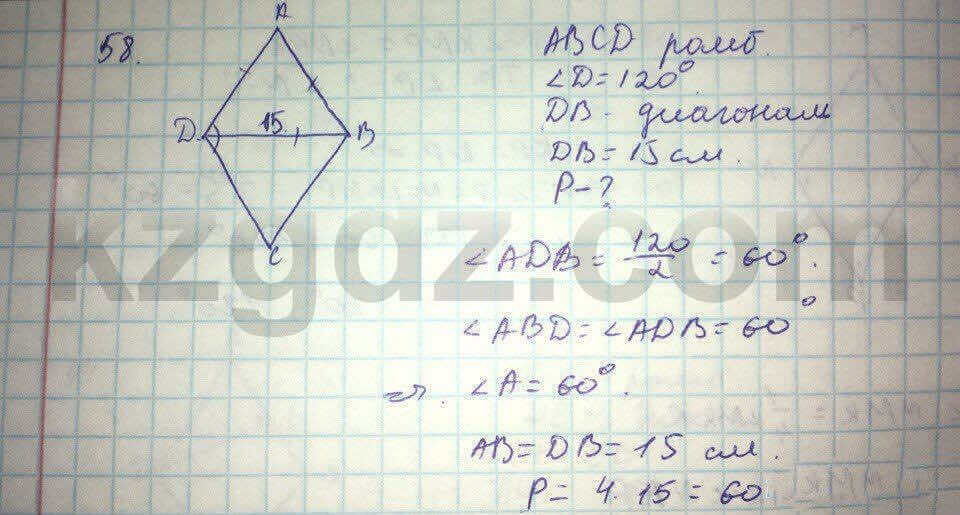 58.
A
D 15 B
C
ABCD ромб.
∠D=120°
DB - диагональ
DB=15 см.
P-?
∠ADB= 120/2 = 60°.
∠ABD=∠ADB=60°
⇒. ∠A=60°.
AB=DB=15 см.
P= 4·15=60
kzgdz.com